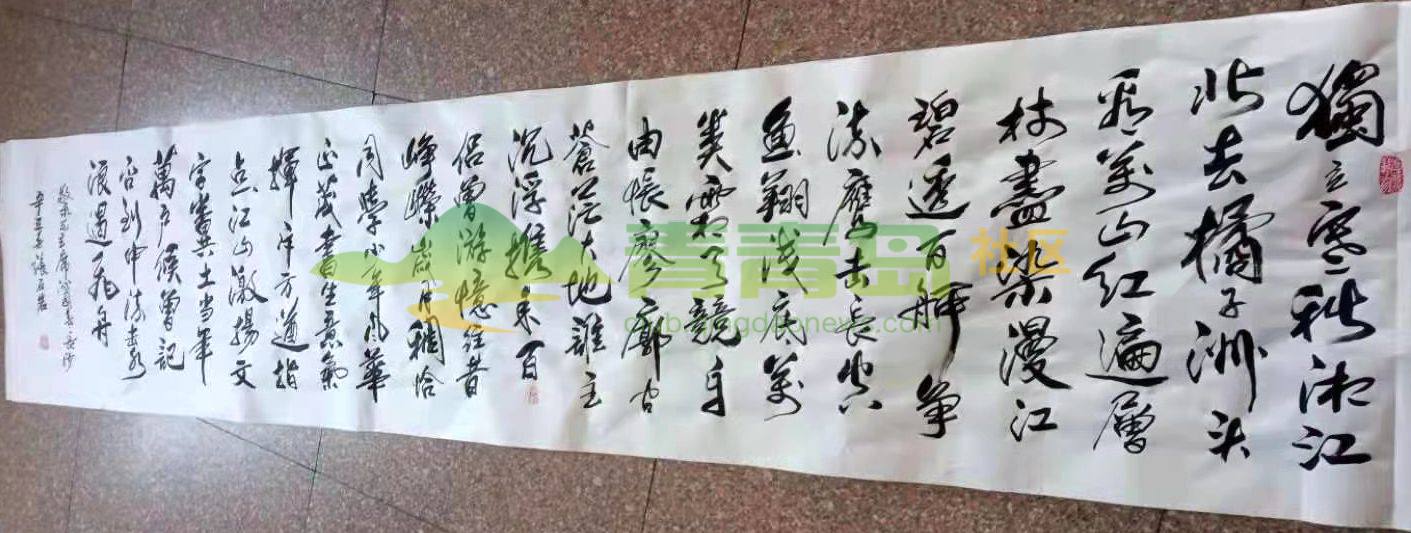 獨立寒秋湘江
北去橘子洲头
看萬山红遍層
林盡染漫江
碧透百舸争
流鹰击长空
鱼翔浅底萬
类霜天競自
由怅廖廓问
蒼茫大地誰主
沉浮攜来百
侣曾游憶往昔
峥嵘歲月稠恰
同學少年風華
正茂書生意氣
揮斥方遒指
点江山激揚文
字糞土当年
萬户侯曾記
否到中流击水
浪遏飛舟
毛主席沁园春长沙
辛丑年張
青青岛社区
club.qingdaonews.com